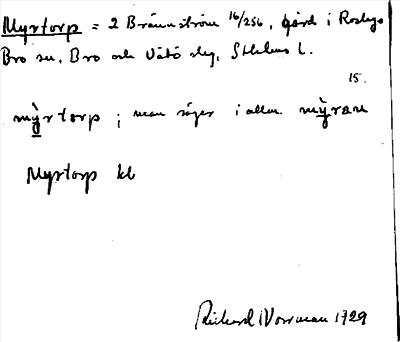 Myrtorp = 2 Brännström 16/256, gård i
Bro sn, Bro och Vätö slg, Sthlms l.
15.
mỳrtorp; man säger i allm. mỳran
Myrtorp kb
Rickard Norrman 1929